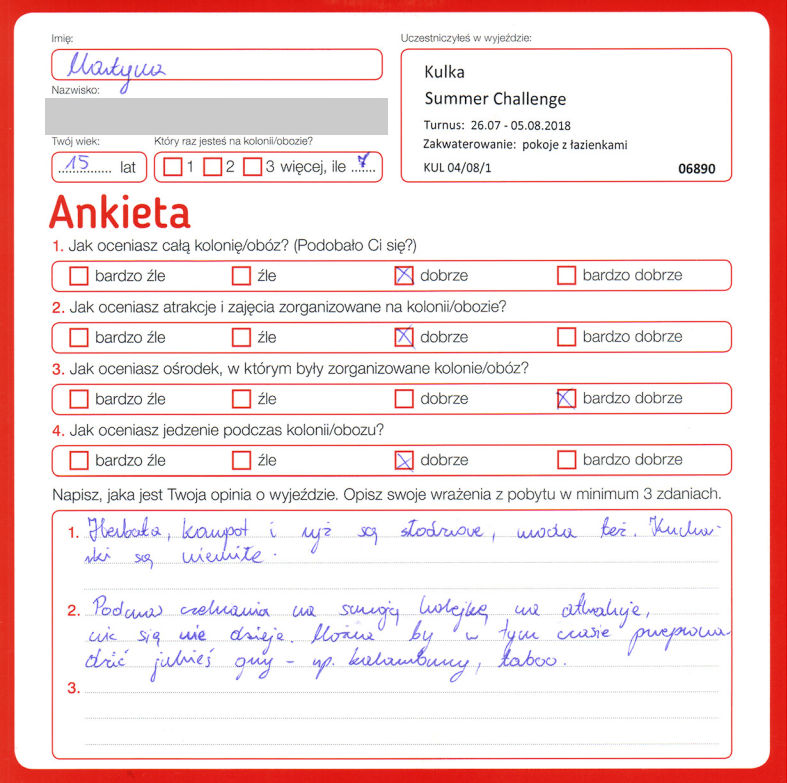 Imię:
Martyna
Nazwisko:
Twój wiek:
15 lat
Który raz jesteś na kolonii/obozie?
1 2 3 więcej, ile 7
Uczestniczyłeś w wyjeździe:
Kulka
Summer Challenge
Turnus: 26.07 - 05.08.2018
Zakwaterowanie: pokoje z łazienkami
KUL 04/08/1 06890
Ankieta
1. Jak oceniasz całą kolonię/obóz? (Podobało Ci się?)
bardzo źle źle dobrze bardzo dobrze
2. Jak oceniasz atrakcje i zajęcia zorganizowane na kolonii/obozie?
bardzo źle źle dobrze bardzo dobrze
3. Jak oceniasz ośrodek, w którym były zorganizowane kolonie/obóz?
bardzo źle źle dobrze bardzo dobrze
4. Jak oceniasz jedzenie podczas kolonii/obozu?
bardzo źle źle dobrze bardzo dobrze
Napisz, jaka jest Twoja opinia o wyjeździe. Opisz swoje wrażenia z pobytu w minimum 3 zdaniach.
1. Herbata, kompot i ryż są słodzone, woda też. Kuchar-
ki są niemiłe.
2. Podczas czekania na swoją kolejkę na atrakcje,
nic się nie dzieje. Można by w tym czasie przeprowa-
dzić jakieś gry - np. kalambury, taboo.
3.